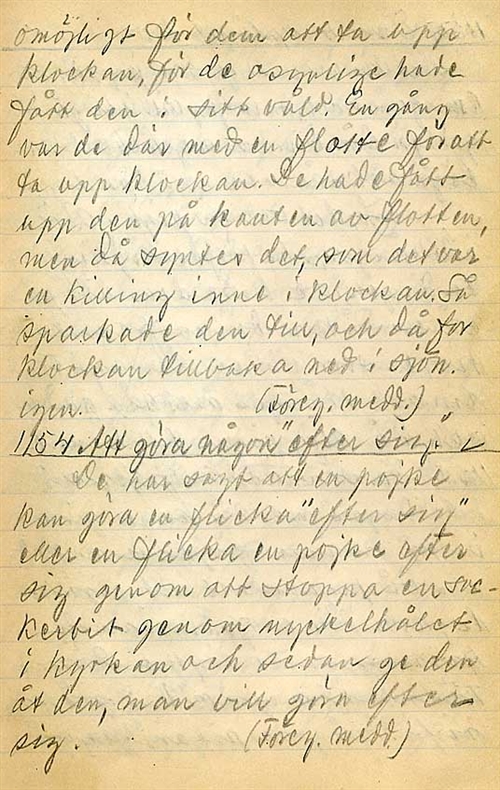 omöjligt för dem att ta upp
klockan, för de osynlige hade
fått den i sitt våld. En gång
var de där med en flotte för att
ta upp klockan. De hade fått
upp den på kanten av flotten,
men då syntes det, som det var
en killing inne i klockan. Så
sparkade den till, och då for
klockan tillbaka ned i sjön
igen. (Föreg. medd.)
1154 Att göra någon "efter sig."
De har sagt att en pojke
kan göra en flicka "efter sig"
eller en flicka en pojke efter
sig genom att stoppa en soc-
kerbit genom nyckelhålet
i kyrkan och sedan ge den
åt den, man vill göra efter
sig. (Föreg. medd.)